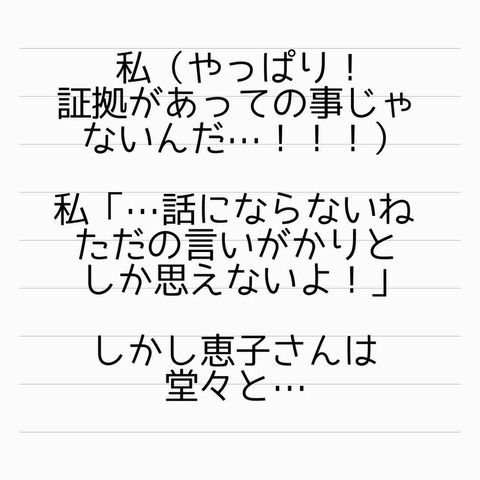 私（やっぱり！
証拠があっての事じゃ
ないんだ…！！！）
私「…話にならないね
ただの言いがかりと
しか思えないよ！」
しかし恵子さんは
堂々と…